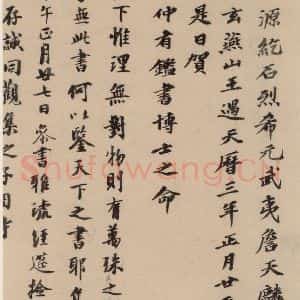 源紇石烈希元武夷詹天麟
玄燕山王遇天曆三年正月廿
是日賀
仲有鑑書博士之命
下惟理無對物則有萬殊之
無此書何以鑒天下之書耶
午正月廿七日
存誠同觀集之子
Shufawang.cn